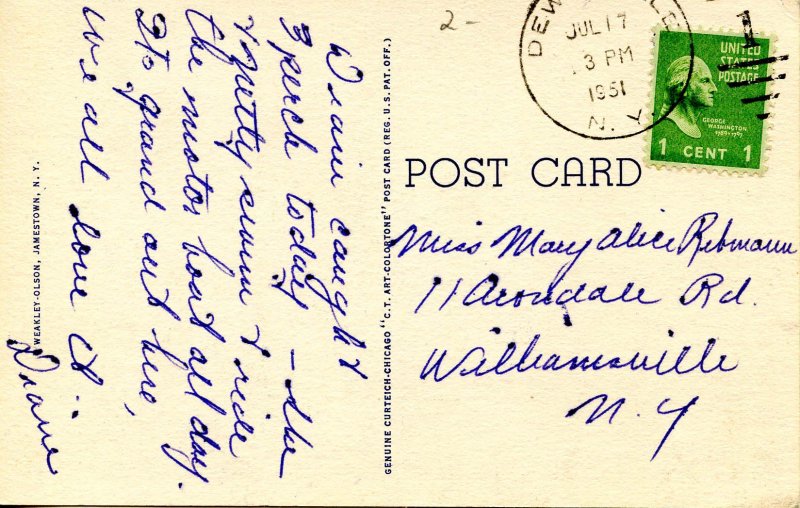 2-
JUL 17
3 PM
1951
N. Y.
1
UNITED
STATES
POSTAGE
GEORGE
WASHINGTON
1789-1797
1 CENT 1
POST CARD
Miss Mary Alice Rebmann
11 Avondale Rd.
Williamsville
N. Y
caught
3 perch today – she
& Betty swim & ride
the motor boat all day.
It's grand out here,
we all love it.
Diane
GENUINE CURTEICH-CHICAGO "C.T. ART-COLORTONE" POST CARD (REG. U.S. PAT. OFF.)
WEAKLEY-OLSON, JAMESTOWN, N. Y.